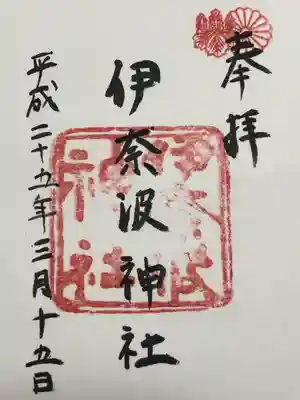 奉拝
伊奈波神社
平成二十五年三月十九日